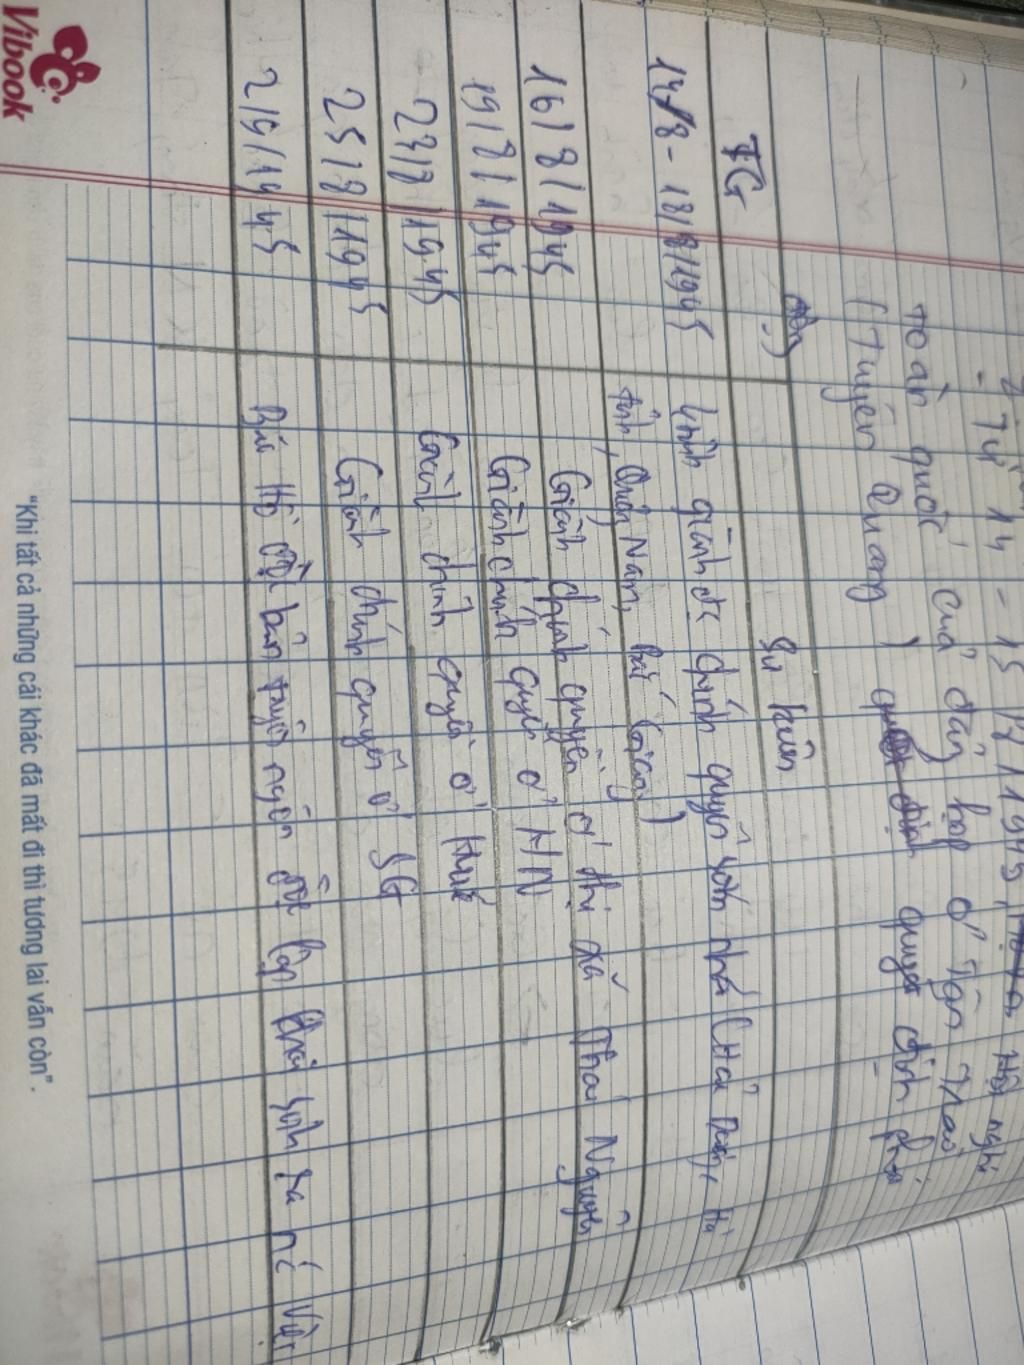 - Từ 14 - 15 /8/1945, Hội nghị
toàn quốc của đảng họp ở Tân Trào
(Tuyên Quang) quyết định
TG Sự kiện
14/8 - 18/8/1945 giành đc chính quyền sớm nhất (Hải Dương, Hà
tĩnh, Quản Nam, Bắc Giang)
16/8/1945 Giành chính quyền ở thị xã Thái Nguyên
19/8/1945 Giành chính quyền ở HN
23/8/1945 Giành chính quyền ở Huế
25/8/1945 Giành chính quyền ở SG
2/9/1945 Bác Hồ đọc bản tuyên ngôn độc lập khai sinh ra nc Việt
Vibook
"Khi tất cả những cái khác đã mất đi thì tương lai vẫn còn".